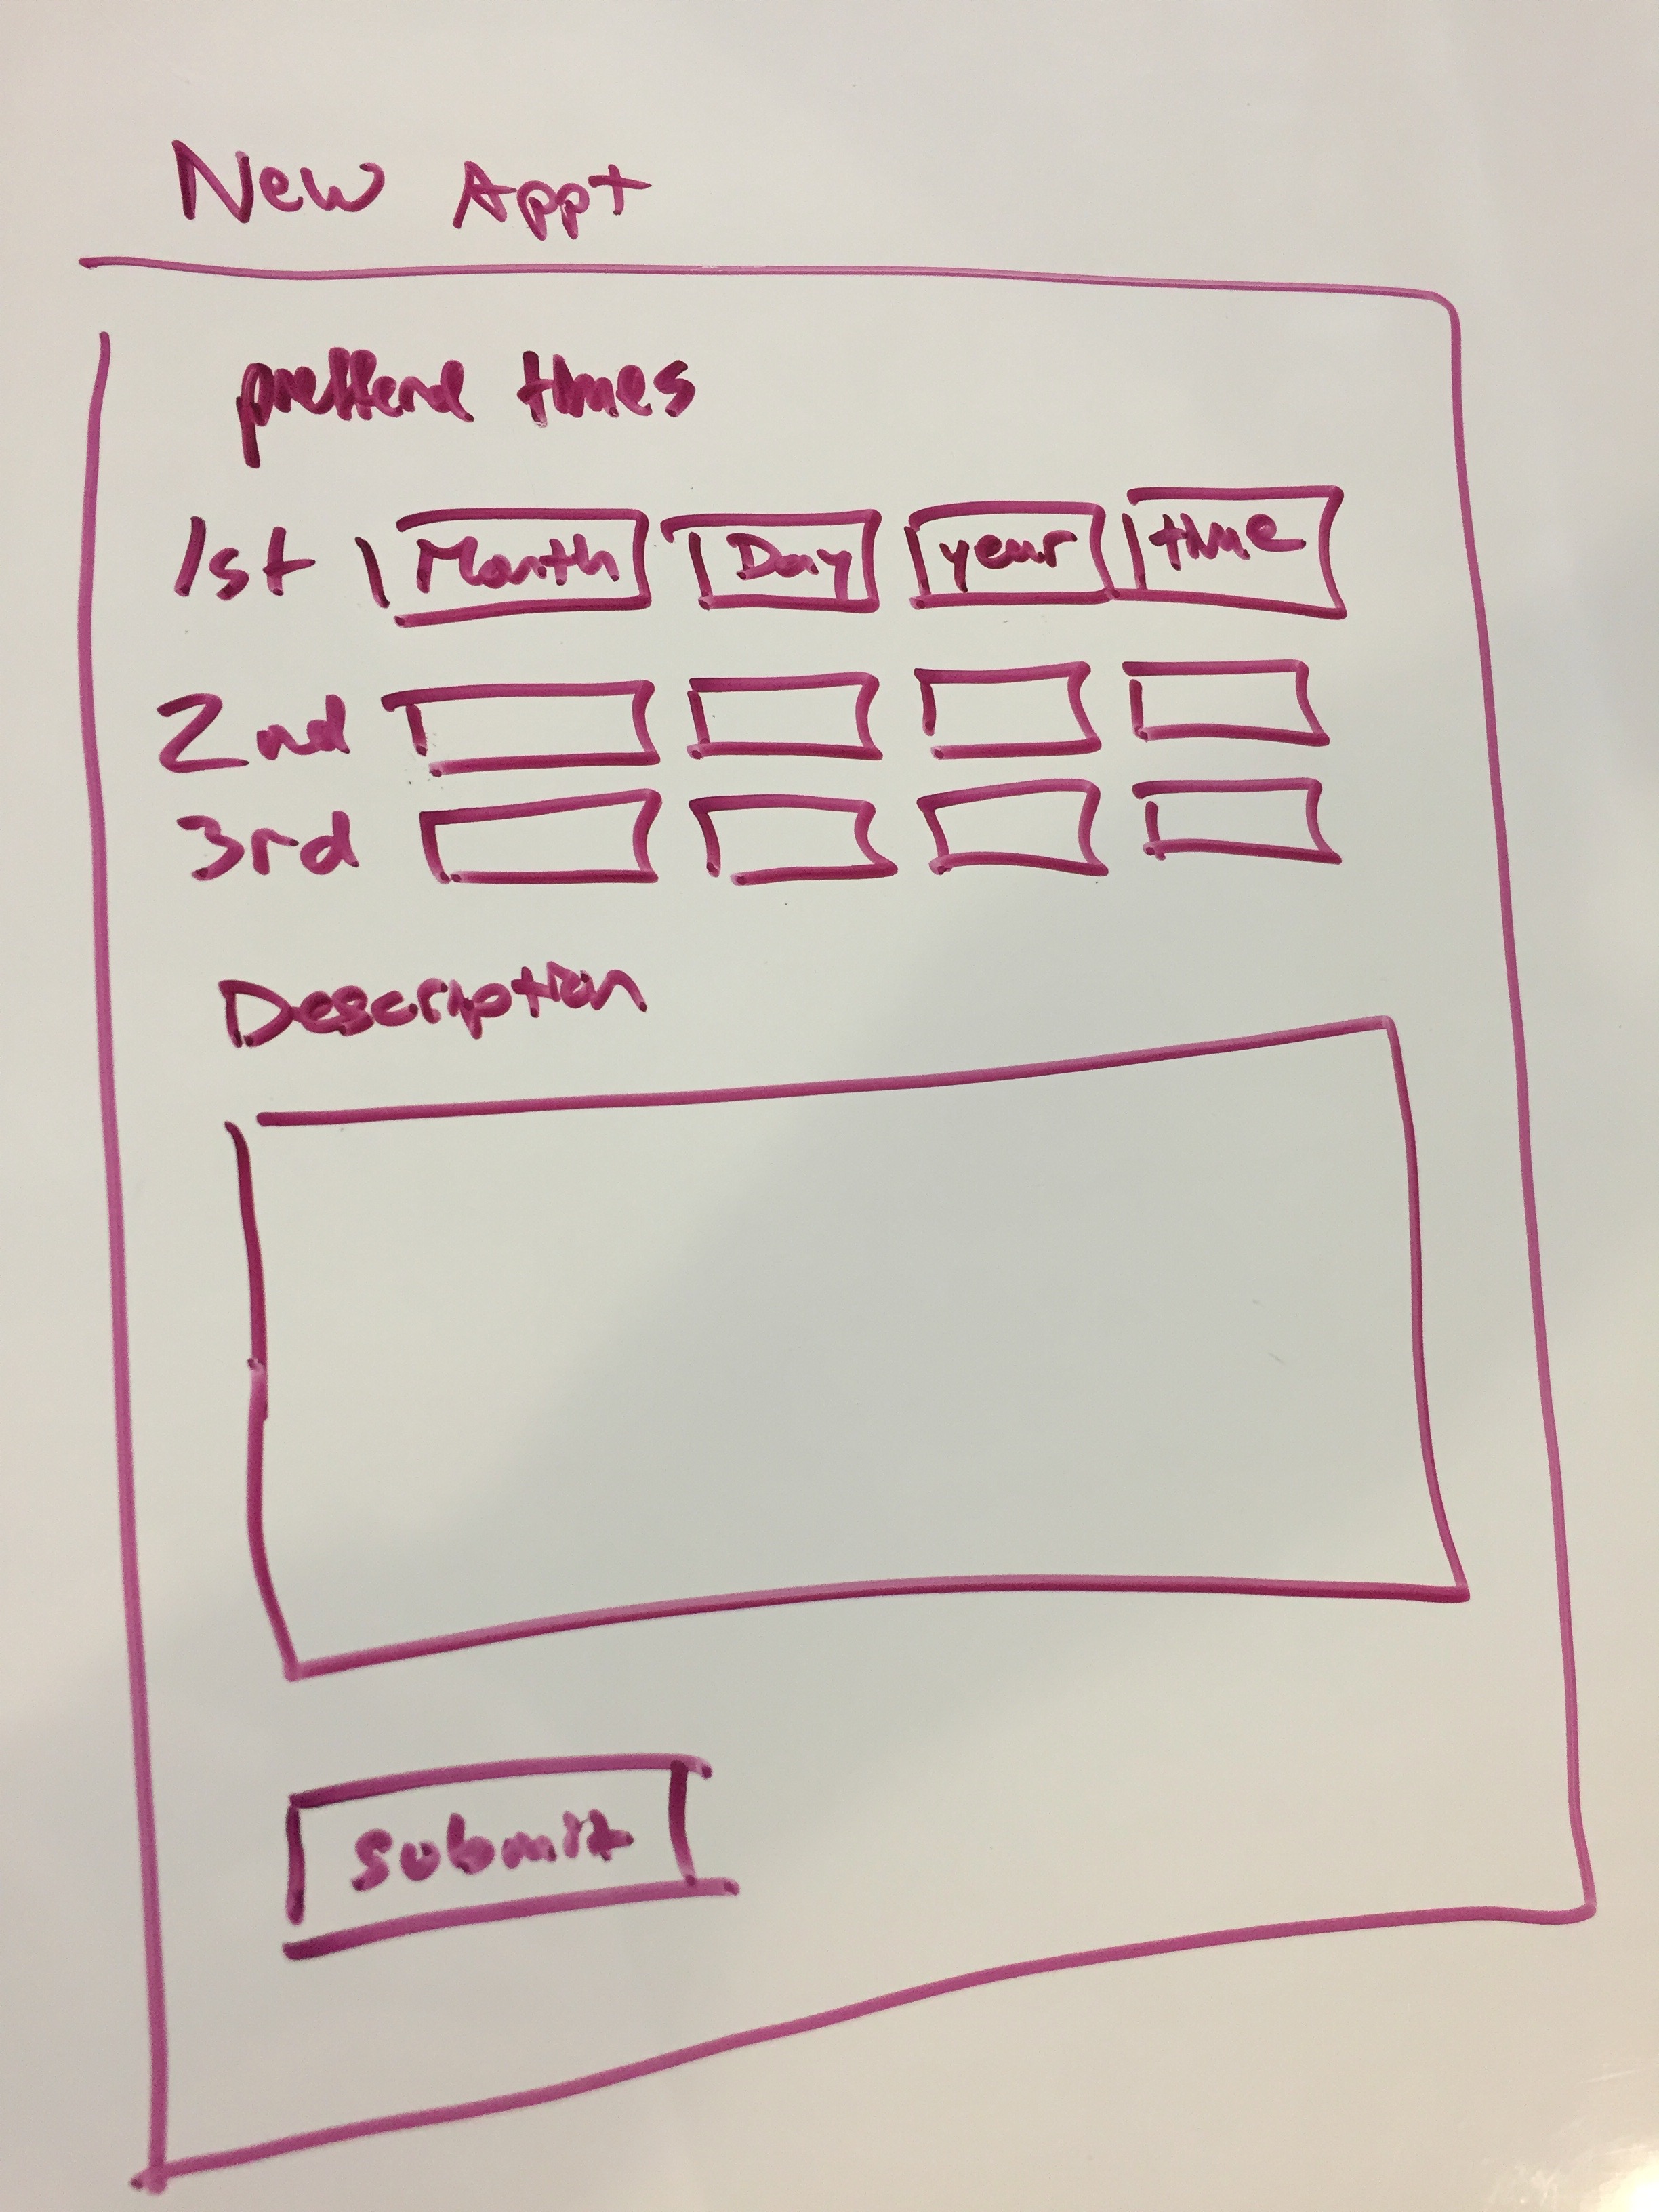 New Appt
preffered times
1st Month Day year time
2nd
3rd
Description
submit